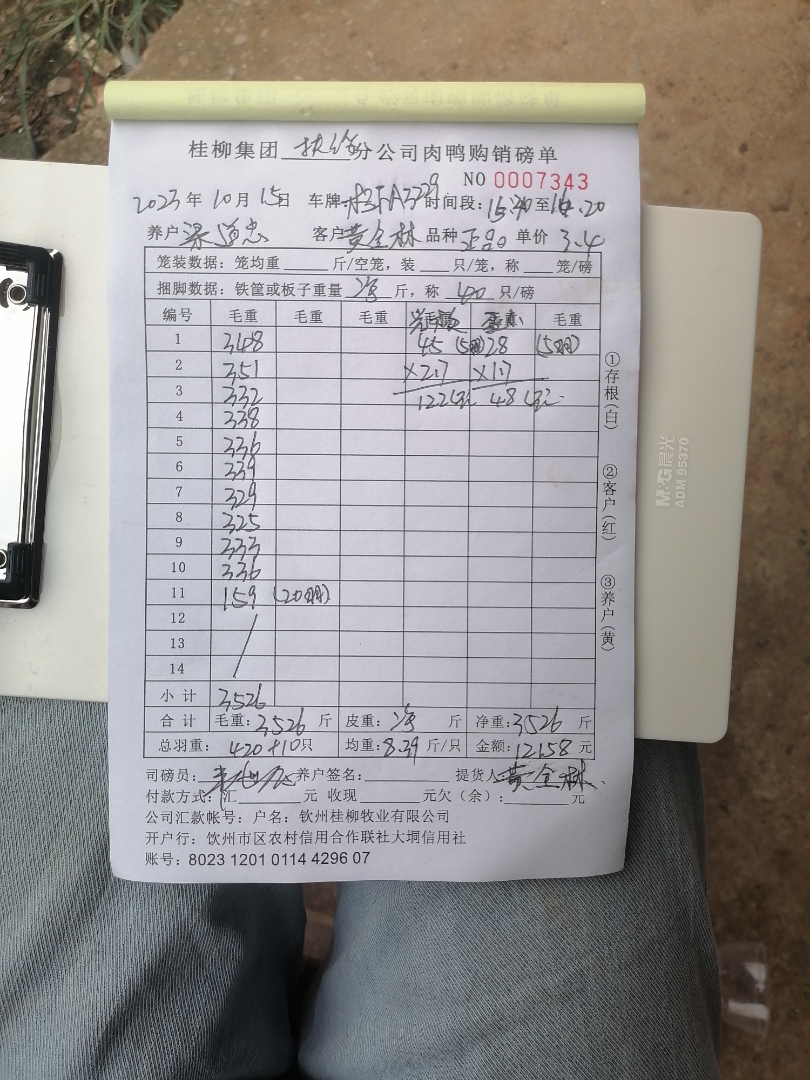 桂柳集团 分公司肉鸭购销磅单
NO 0007343
2023年10月15日 车牌 时间段：15:40至16.20
养户 梁道忠 客户 黄全林 品种 正品 单价 3.4
笼装数据：笼均重 斤/空笼，装 只/笼，称 笼/磅
捆脚数据：铁筐或板子重量 净 斤，称 40 只/磅
编号 毛重 毛重 毛重 毛重
1 3408 45 (5羽) 28 (5羽)
2 351 ×2.7 ×1.7
3 332 122 48
4 338
5 336
6 339
7 329
8 325
9 333
10 336
11 159 (20羽)
12
13
14
小计 3526
合计 毛重：3526 斤 皮重：净 斤 净重：3526 斤
总羽重：420+10只 均重：8.39斤/只 金额：12158元
司磅员： 养户签名： 提货人 黄全林
付款方式：汇 元 收现 元欠（余）： 元
公司汇款帐号：户名：钦州桂柳牧业有限公司
开户行：钦州市区农村信用合作联社大垌信用社
账号：8023 1201 0114 4296 07
①存根（白）
②客户（红）
③养户（黄）
M&G晨光
ADM 95370